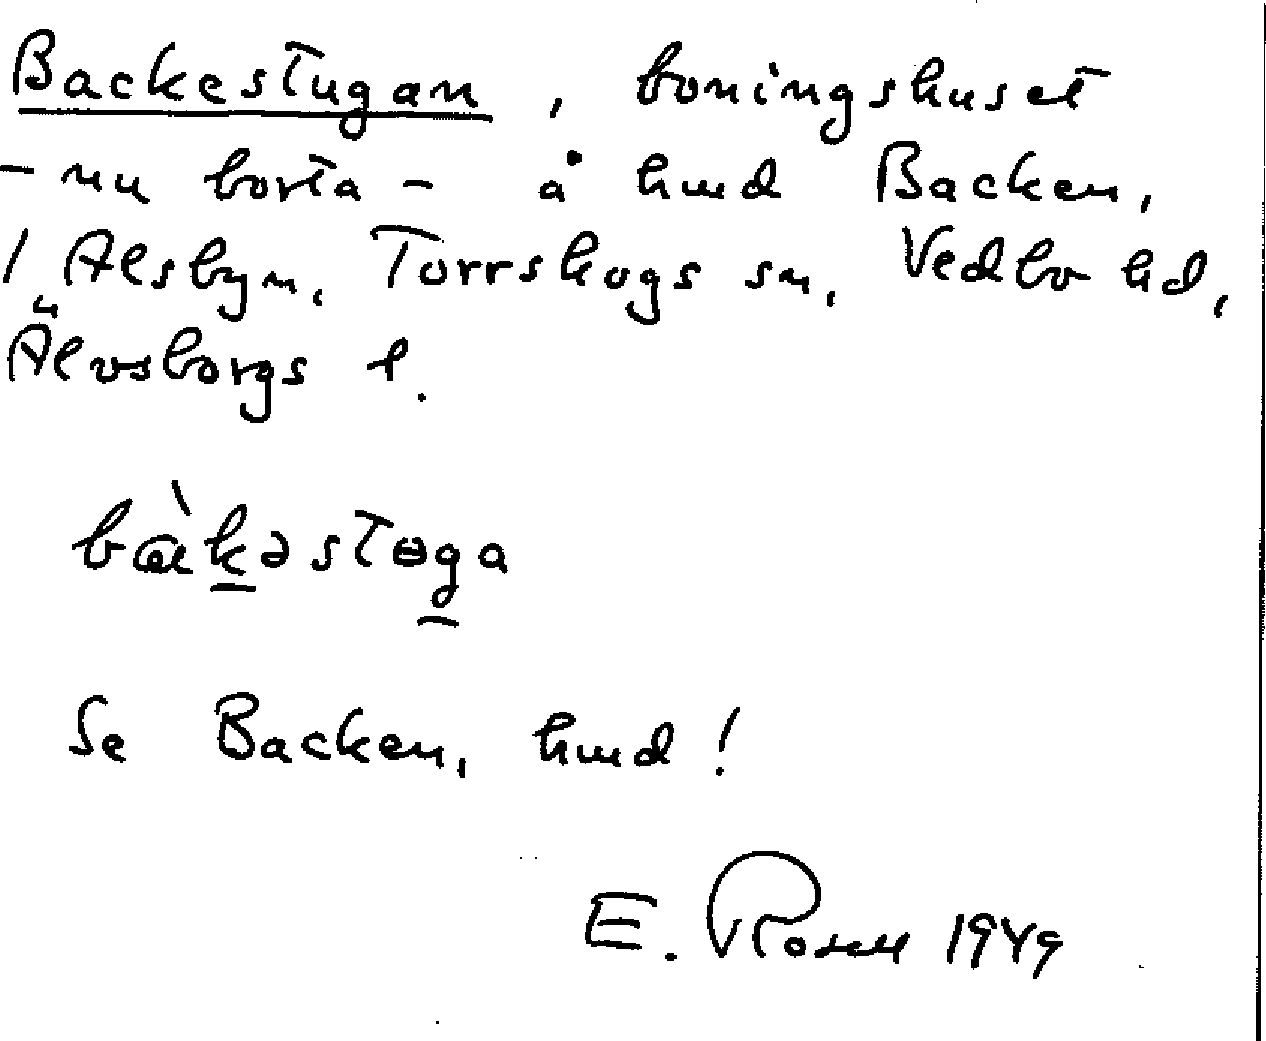 Backestugan, boningshuset
- nu borta - å hmd Backen,
1 Alsbyn, Torrskogs sn, Vedbo hd,
Älvsborgs l.
bàkəstɵga
Se Backen, hmd!
E. Rosell 1949